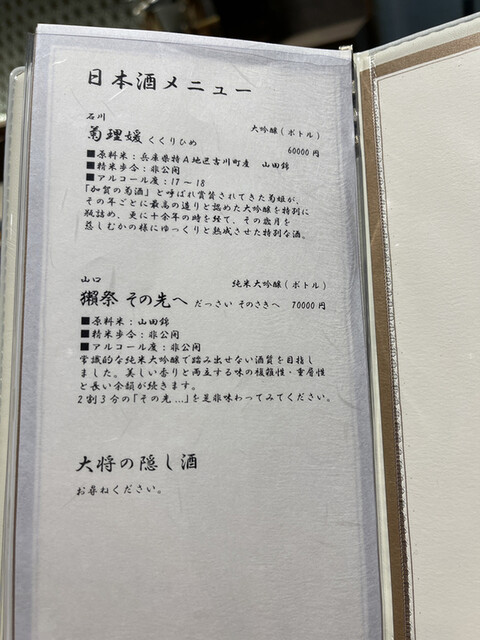 日本酒メニュー
石川
大吟醸(ボトル)
菊理媛 くくりひめ 60000円
■原料米:兵庫県特A地区吉川町産 山田錦
■精米歩合:非公開
■アルコール度:17~18
「加賀の菊酒」と呼ばれ賞賛されてきた菊姫が、
その年ごとに最高の造りと認めた大吟醸を特別に
瓶詰め、更に十余年の時を経て、その歳月を
慈しむかの様にゆっくりと熟成させた特別な酒。
山口
純米大吟醸(ボトル)
獺祭 その先へ だっさい そのさきへ 70000円
■原料米:山田錦
■精米歩合:非公開
■アルコール度:非公開
常識的な純米大吟醸で踏み出せない酒質を目指し
ました。美しい香りと両立する味の複雑性・重層性
と長い余韻が続きます。
2割3分の「その先…」を是非味わってみてください。
大将の隠し酒
お尋ねください。